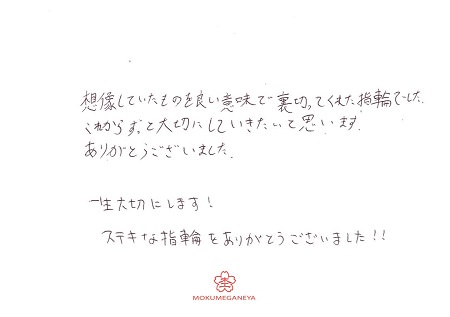 想像していたものを良い意味で裏切ってくれた指輪でした。
これからずっと大切にしていきたいと思います。
ありがとうございました。
一生大切にします!
ステキな指輪をありがとうございました!!
MOKUMEGANEYA